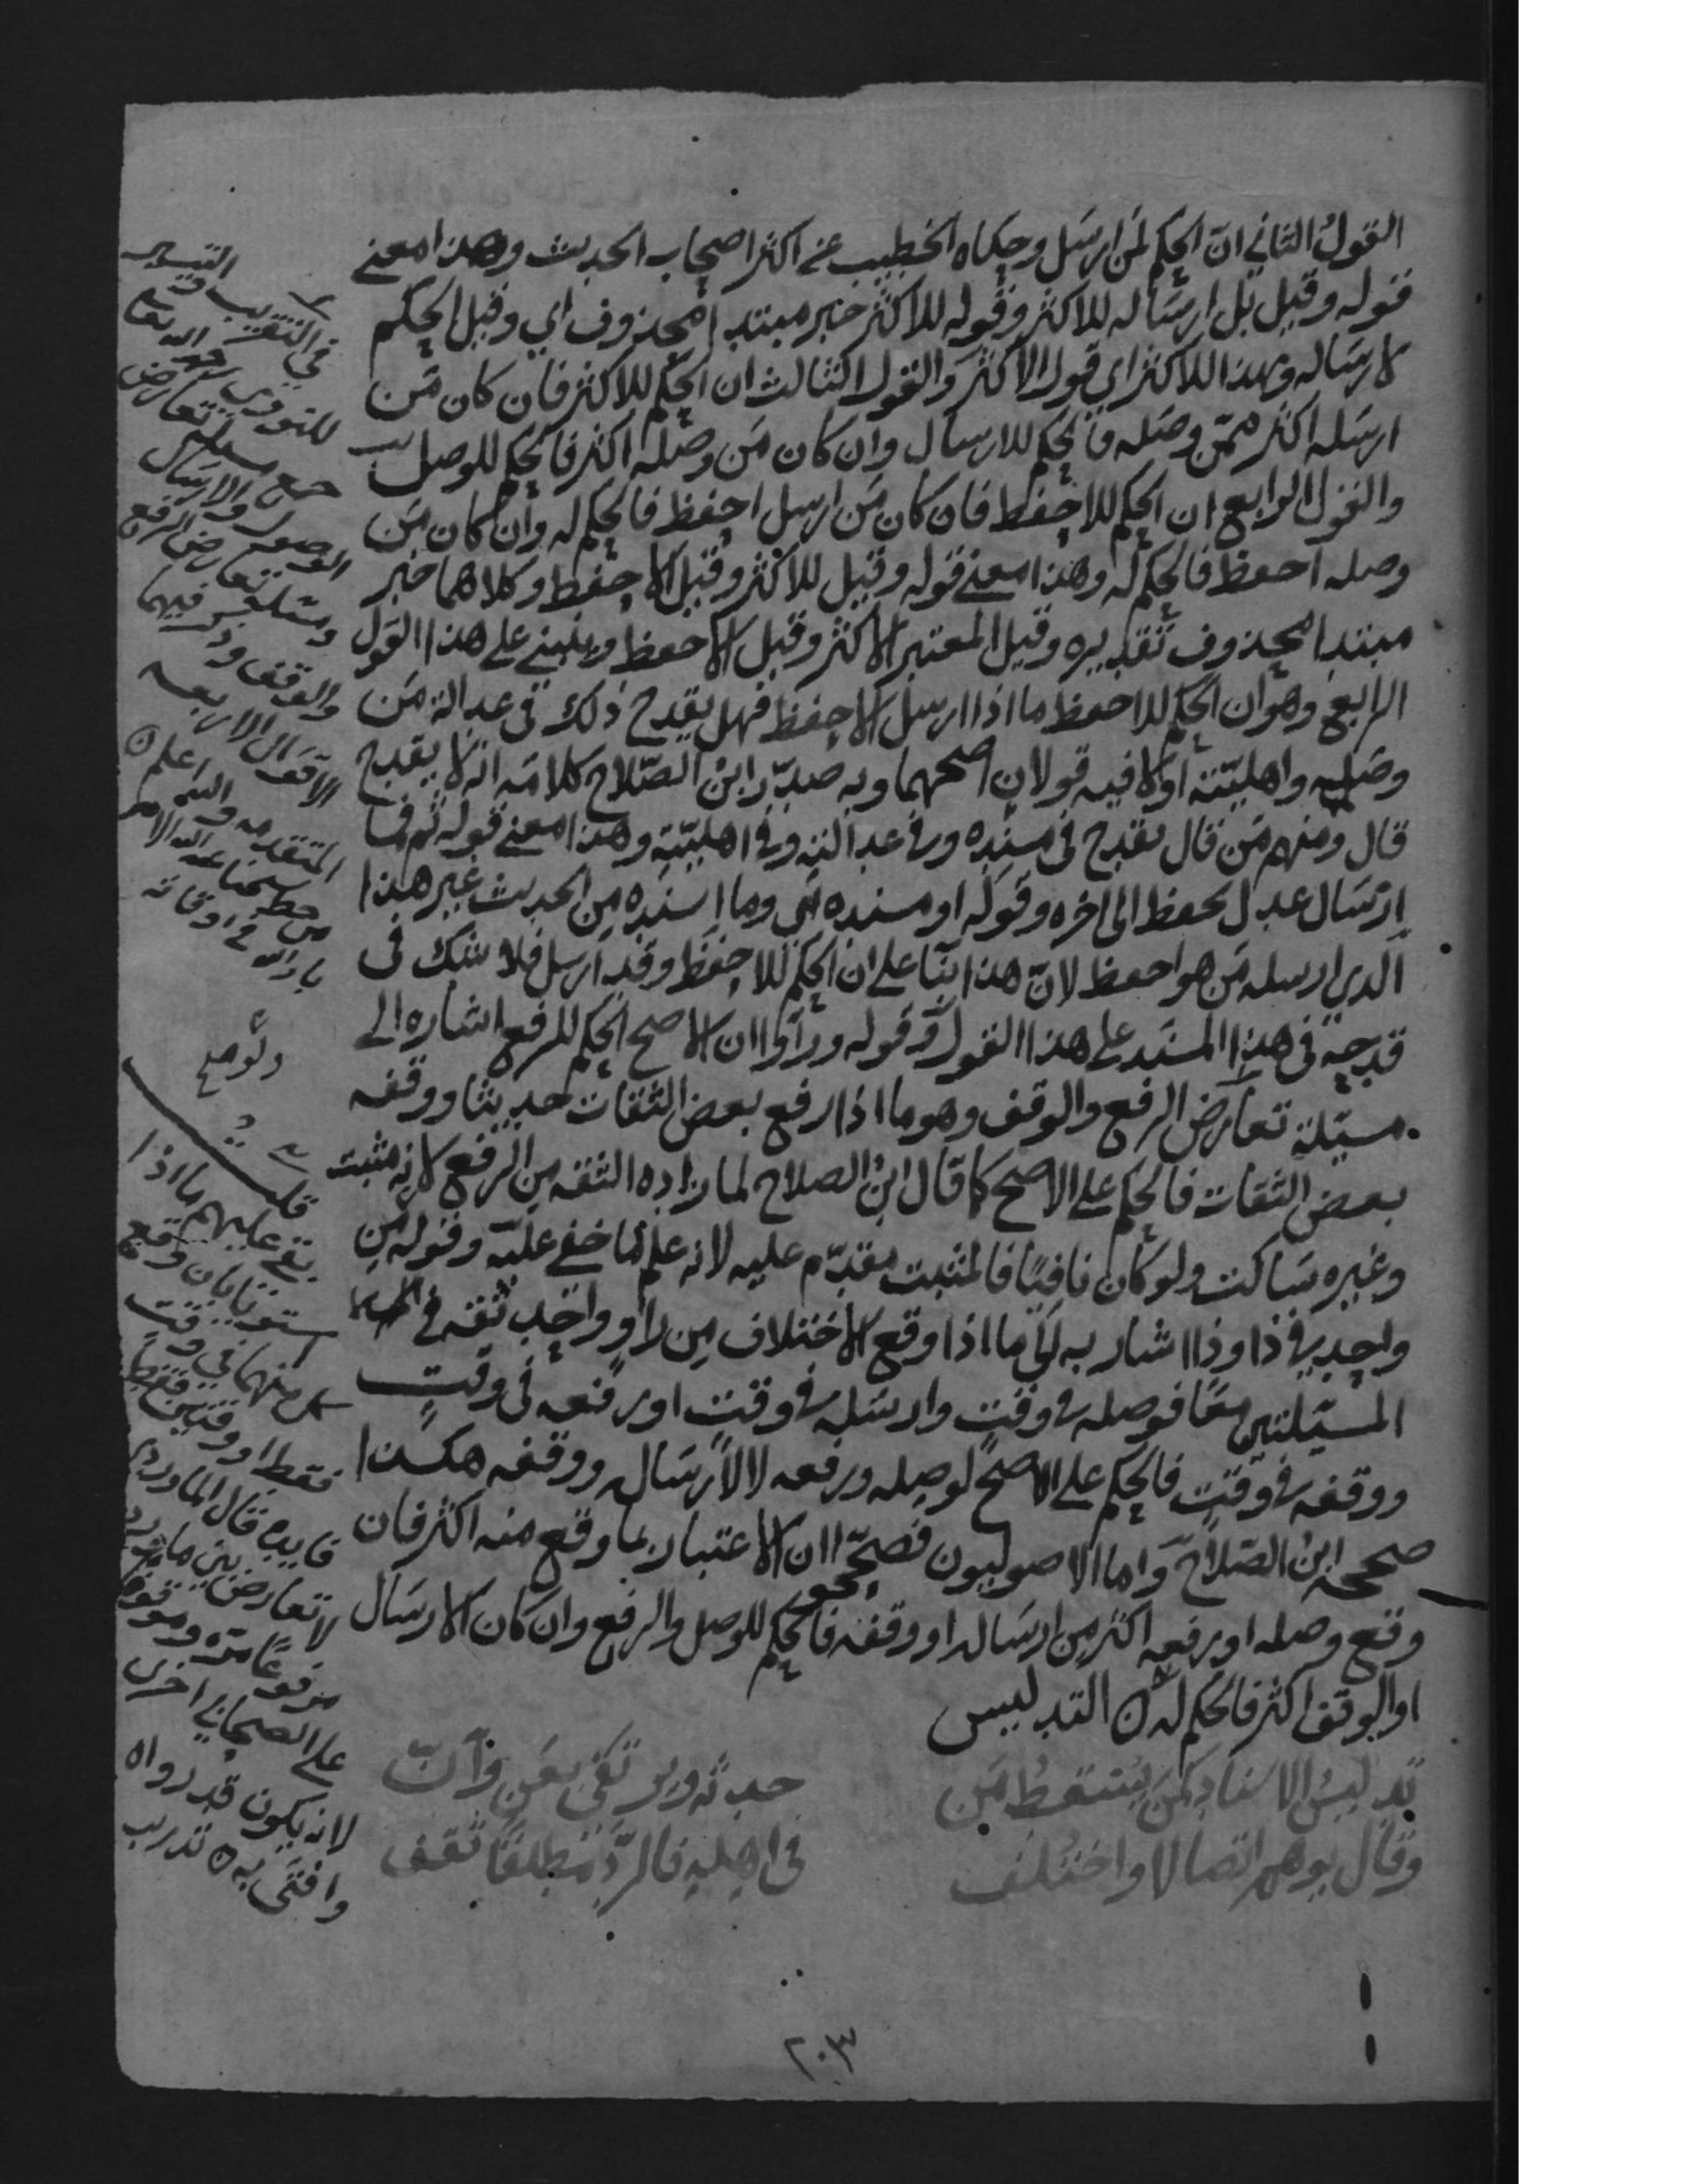 القولُ الثاني انّ الحكم لمَن ارسَل وحكاه الخطيب عن اكثر اصحاب الحديث وهذا معنى
قوله وقيل بل ارسَاله للاكثر وقوله للاكثر خبر مبتدا محذوف اي وقيل الحكم
لارسَاله وهذا للاكثر اي قول الاكثر والقول الثالث ان الحكم للاكثر فان كان مَن
ارسَله اكثر ممّن وصَله فالحكم للارسال وان كان مَن وصَله اكثر فالحكم للوصل
والقول الرابع ان الحكم للاحفظ فان كان مَن ارسل احفظ فالحكم له وان كان مَن
وصله احفظ فالحكم له وهذا معنى قوله وقيل للاكثر وقيل الاحفظ وكلاهما خبر
مبتدا محذوف تقديره وقيل المعتبر الاكثر وقيل الاحفظ وينبني على هذا القول
الرابع وهو ان الحكم للاحفظ ما اذا ارسل الاحفظ فهل يقدح ذلك في عدالة مَن
وصَله واهليّته اولا فيه قولان اصحهما وبه صدّر ابن الصّلاح كلامَه انه لا يقدح
قال ومنهم مَن قال يقدح في مسنده وفي عدالته وفي اهليّته وهذا معنى قوله ثم فما
ارْسَال عدل يحفظ الى اخره وقوله او مسنده اي وما اسنده من الحديث غير هذا
الذي ارسله مَن هو احفظ لانّ هذا بنا على ان الحكم للاحفظ وقد ارسل فلا شك في
قدحه في هذا المسند على هذا القول وقوله ورأوا ان الاصح الحكم للرفع اشاره الى
مسئلة تعارض الرفع والوقف وهو ما اذا رفع بعض الثقات حديثا ووقفه
بعض الثقات فالحكم على الاصح كما قال ابنُ الصلاح لما زاده الثقه من الرفع لانه مثبت
وغيره سَاكت ولو كان نافيًا فالمثبت مقدّم عليه لانه علم ما خفي عليه وقوله من
واحد في ذا وذا اشار به الى ما اذا وقع الاختلاف من راو واحد ثقه في
المسئلتين معًا فوصله في وقت وارسَله في وقت او رفعه في وقت
ووقفه في وقت فالحكم على الاصح لوصله ورفعه لا لارسَاله ووقفه هكذا
صححه ابنُ الصّلاح واما الاصوليون فصحّحوا ان الاعتبار بما وقع منه اكثر فان
وقع وصله او رفعه اكثر من ارسَاله او وقفه فالحكم للوصل والرفع وان كان الارسَال
او الوقف اكثر فالحكم له ه التدليس
تدليسُ الاسناد كمن يُسقطُ مَن حدثه ويرتقي بعَن وأنّ
وقال يوهم اتصالا واختلف في اهله فالردّ مطلقًا ثقف
في التقريب والتيسير
للنووي رحمه الله تعالى
جمع مسئلة تعارض
الوصل والارسَال
ومسئلة تعارض الرفع
والوقف وذكر فيهما
الاقوال الاربعه
المتقدمه والله اعلم ه
من خط شيخنا
بارك الله في اوقاته
قلت
بقي عليهم ما اذا
استويا بان وقع
كل منهما في وقت
فقط او وقتين فقط
فايده قال الماوردي
لا تعارض بين ما ورد
مرفوعًا مرّه وموقوفا
على الصحابي اخرى
لانه يكون قد رواه
وافتى به ه تدريب
٢٠٣